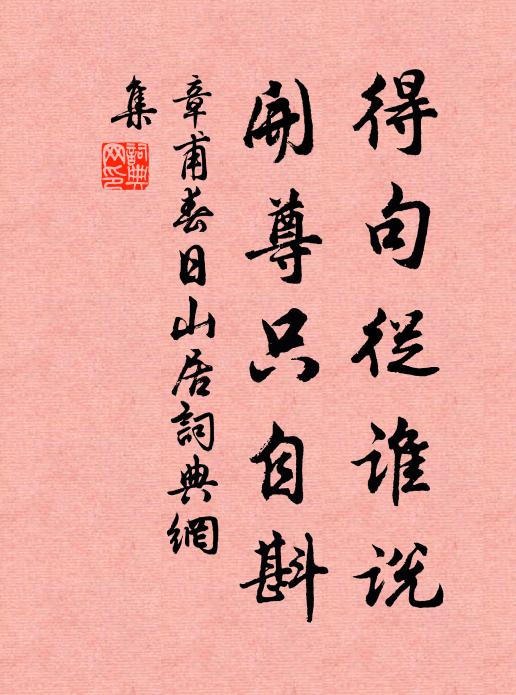 得句從谁说
開尊只自斟
章甫春日山居詞典網
集
詞典
网印